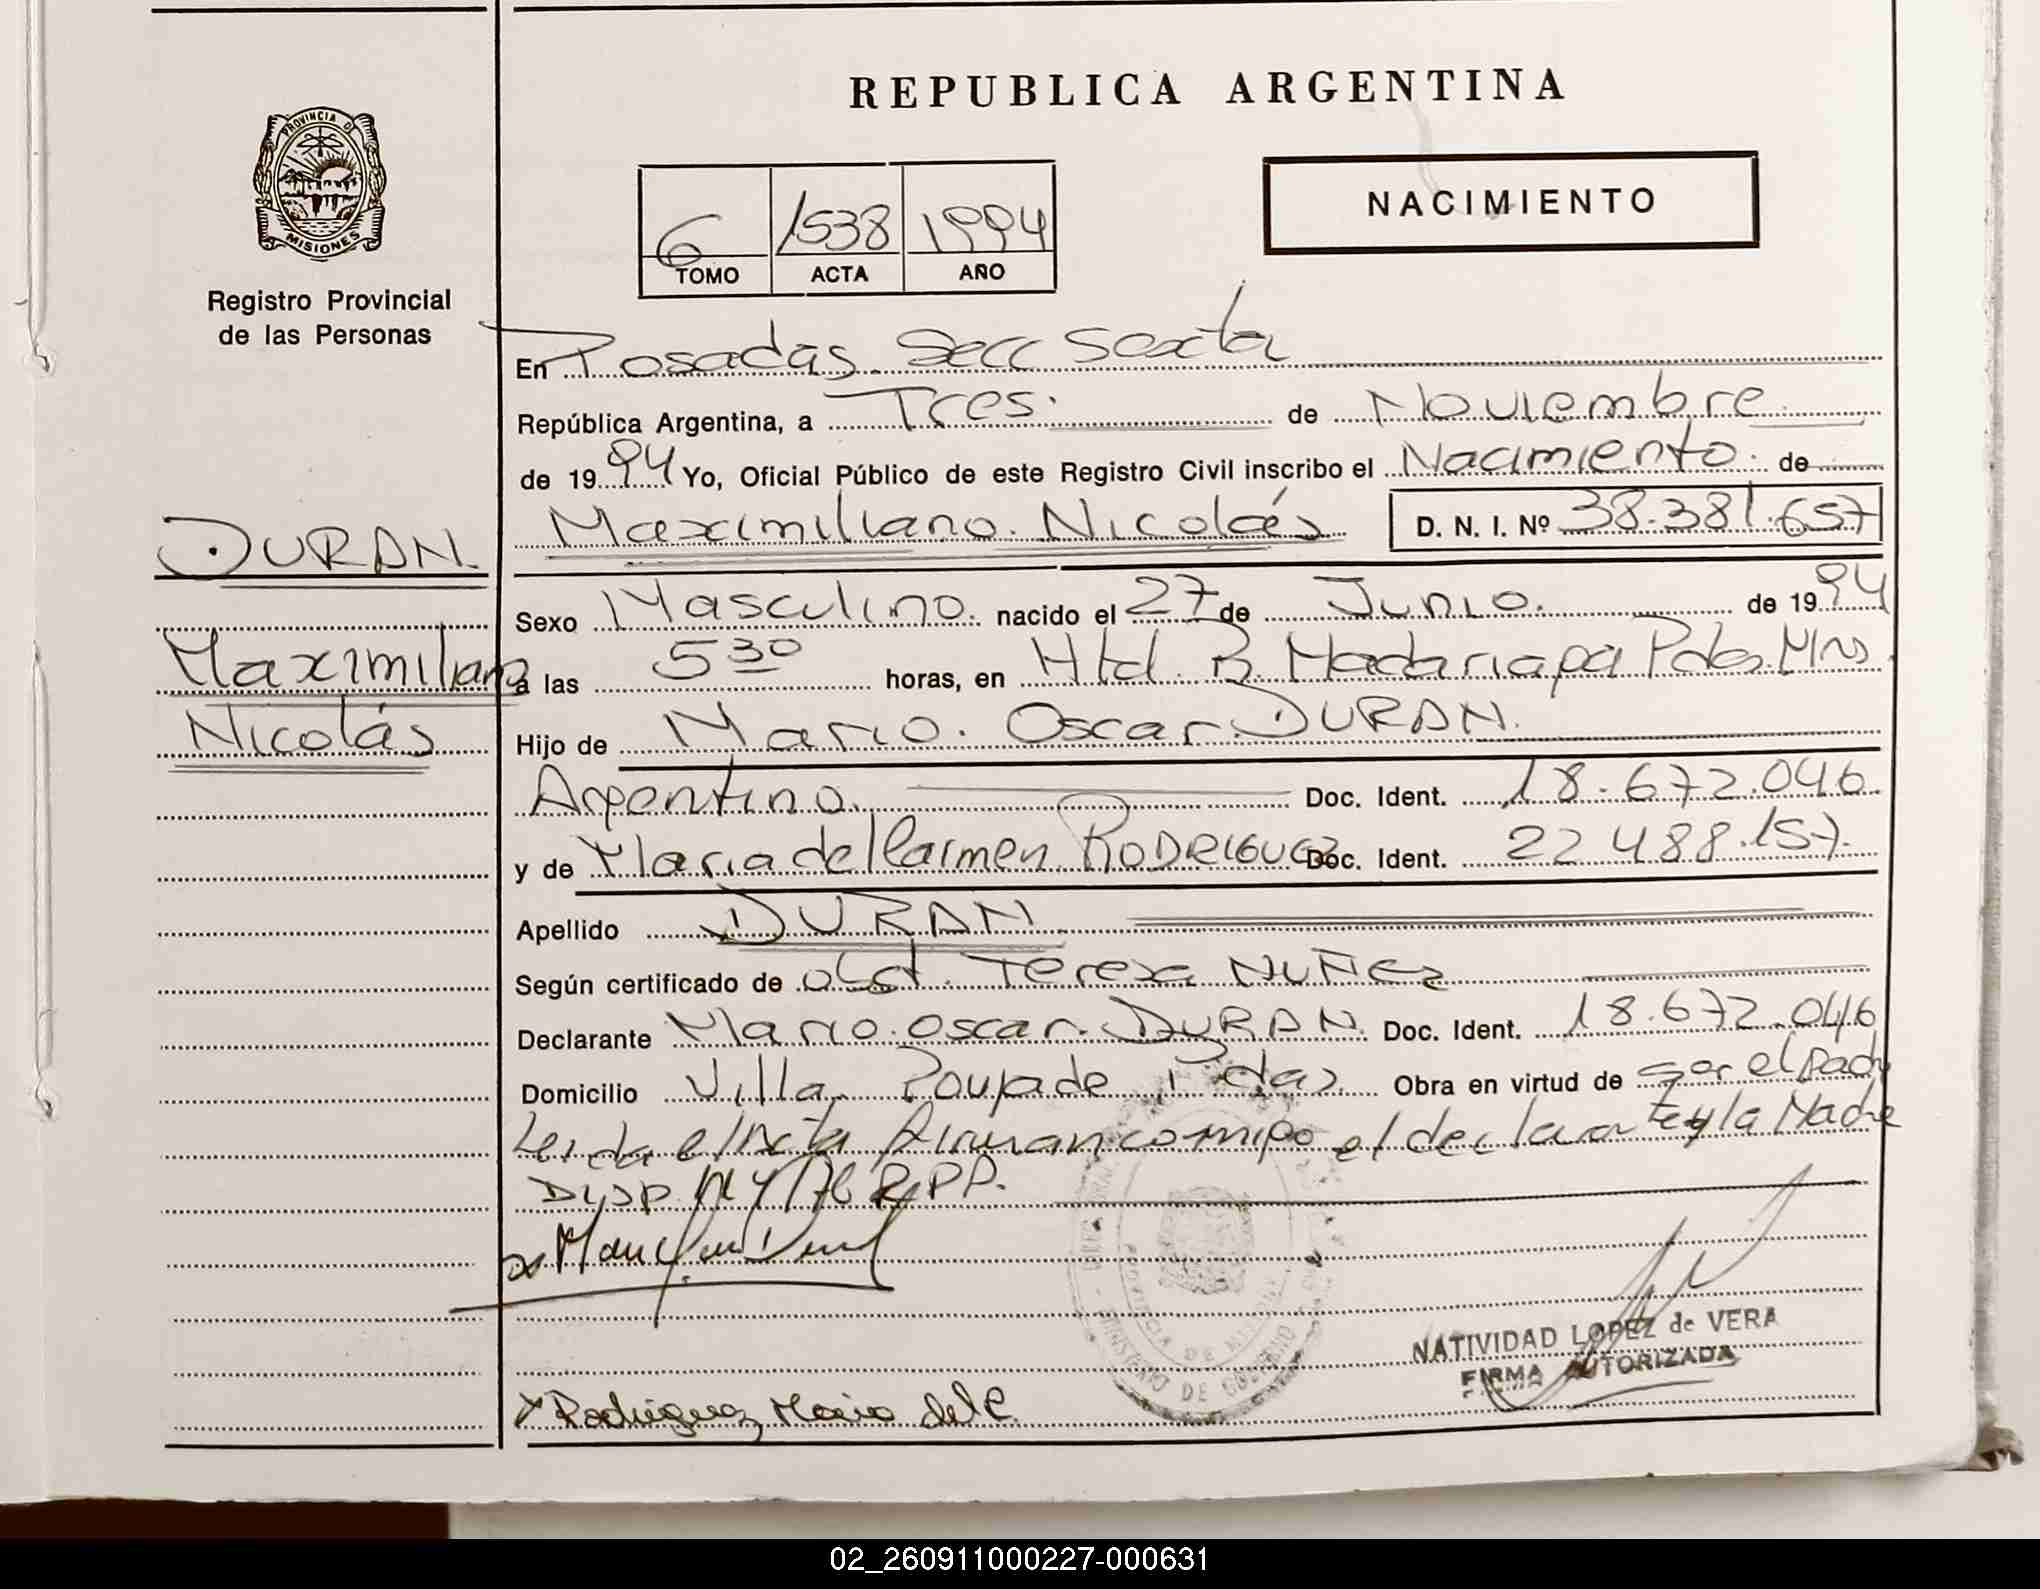 REPUBLICA ARGENTINA
PROVINCIA DE
MISIONES
Registro Provincial
de las Personas
6 1538 1994
TOMO ACTA AÑO
NACIMIENTO
En Posadas Secc Sexta
República Argentina, a Tres. de Noviembre
de 1994 Yo, Oficial Público de este Registro Civil inscribo el Nacimiento de
Maximiliano Nicolás D. N. I. Nº 38.381.657
DURAN
Maximiliano
Nicolás
Sexo Masculino. nacido el 27 de Junio. de 1994
a las 5 30 horas, en Htal. R. Madariaga Pdas. Mns
Hijo de Mario. Oscar DURAN.
Argentino. Doc. Ident. 18.672.046
y de Maria del Carmen RODRIGUEZ Doc. Ident. 22 488.157.
Apellido DURAN
Según certificado de obst. Teresa NUÑEZ
Declarante Mario. Oscar. DURAN. Doc. Ident. 18.672.046
Domicilio Villa Poujade Pdas. Obra en virtud de ser el padre
Leida el Acta firman conmigo el declarante y la Madre
R.P.P.
NATIVIDAD LOPEZ de VERA
FIRMA AUTORIZADA
MINISTERIO DE GOBIERNO
PROVINCIA DE MISIONES
x Rodriguez Maria del C.
02_260911000227-000631